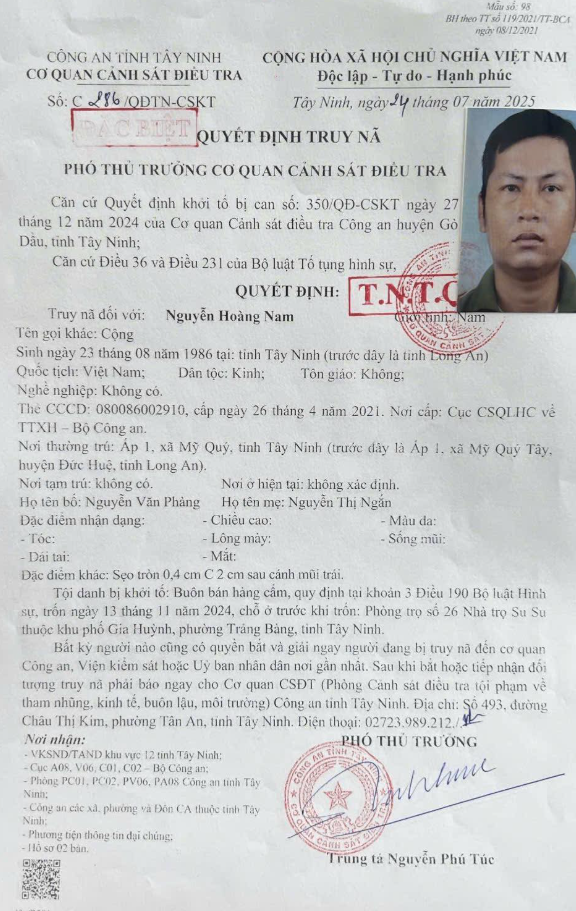 Mẫu số: 98
BH theo TT số 119/2021/TT-BCA
ngày 08/12/2021
CÔNG AN TỈNH TÂY NINH
CƠ QUAN CẢNH SÁT ĐIỀU TRA
CỘNG HÒA XÃ HỘI CHỦ NGHĨA VIỆT NAM
Độc lập - Tự do - Hạnh phúc
Số: C 286/QĐTN-CSKT
Tây Ninh, ngày 24 tháng 07 năm 2025
ĐẶC BIỆT
QUYẾT ĐỊNH TRUY NÃ
PHÓ THỦ TRƯỞNG CƠ QUAN CẢNH SÁT ĐIỀU TRA
Căn cứ Quyết định khởi tố bị can số: 350/QĐ-CSKT ngày 27
tháng 12 năm 2024 của Cơ quan Cảnh sát điều tra Công an huyện Gò
Dầu, tỉnh Tây Ninh;
Căn cứ Điều 36 và Điều 231 của Bộ luật Tố tụng hình sự,
QUYẾT ĐỊNH:
T.N.T.Q
Truy nã đối với: Nguyễn Hoàng Nam Giới tính: Nam
Tên gọi khác: Cộng
Sinh ngày 23 tháng 08 năm 1986 tại: tỉnh Tây Ninh (trước đây là tỉnh Long An)
Quốc tịch: Việt Nam; Dân tộc: Kinh; Tôn giáo: Không;
Nghề nghiệp: Không có.
Thẻ CCCD: 080086002910, cấp ngày 26 tháng 4 năm 2021. Nơi cấp: Cục CSQLHC về
TTXH – Bộ Công an.
Nơi thường trú: Ấp 1, xã Mỹ Quý, tỉnh Tây Ninh (trước đây là Ấp 1, xã Mỹ Quý Tây,
huyện Đức Huệ, tỉnh Long An).
Nơi tạm trú: không có. Nơi ở hiện tại: không xác định.
Họ tên bố: Nguyễn Văn Phảng Họ tên mẹ: Nguyễn Thị Ngắn
Đặc điểm nhận dạng: - Chiều cao: - Màu da:
- Tóc: - Lông mày: - Sống mũi:
- Dái tai: - Mắt:
Đặc điểm khác: Sẹo tròn 0,4 cm C 2 cm sau cánh mũi trái.
Tội danh bị khởi tố: Buôn bán hàng cấm, quy định tại khoản 3 Điều 190 Bộ luật Hình
sự, trốn ngày 13 tháng 11 năm 2024, chỗ ở trước khi trốn: Phòng trọ số 26 Nhà trọ Su Su
thuộc khu phố Gia Huỳnh, phường Trảng Bàng, tỉnh Tây Ninh.
Bất kỳ người nào cũng có quyền bắt và giải ngay người đang bị truy nã đến cơ quan
Công an, Viện kiểm sát hoặc Uỷ ban nhân dân nơi gần nhất. Sau khi bắt hoặc tiếp nhận đối
tượng truy nã phải báo ngay cho Cơ quan CSĐT (Phòng Cảnh sát điều tra tội phạm về
tham nhũng, kinh tế, buôn lậu, môi trường) Công an tỉnh Tây Ninh. Địa chỉ: Số 493, đường
Châu Thị Kim, phường Tân An, tỉnh Tây Ninh. Điện thoại: 02723.989.212./.
Nơi nhận:
- VKSND/TAND khu vực 12 tỉnh Tây Ninh;
- Cục A08, V06, C01, C02 – Bộ Công an;
- Phòng PC01, PC02, PV06, PA08 Công an tỉnh Tây
Ninh;
- Công an các xã, phường và Đồn CA thuộc tỉnh Tây
Ninh;
- Phương tiện thông tin đại chúng;
- Hồ sơ 02 bản.
PHÓ THỦ TRƯỞNG
CÔNG AN TỈNH TÂY NINH
CƠ QUAN CẢNH SÁT ĐIỀU TRA
Trung tá Nguyễn Phú Túc